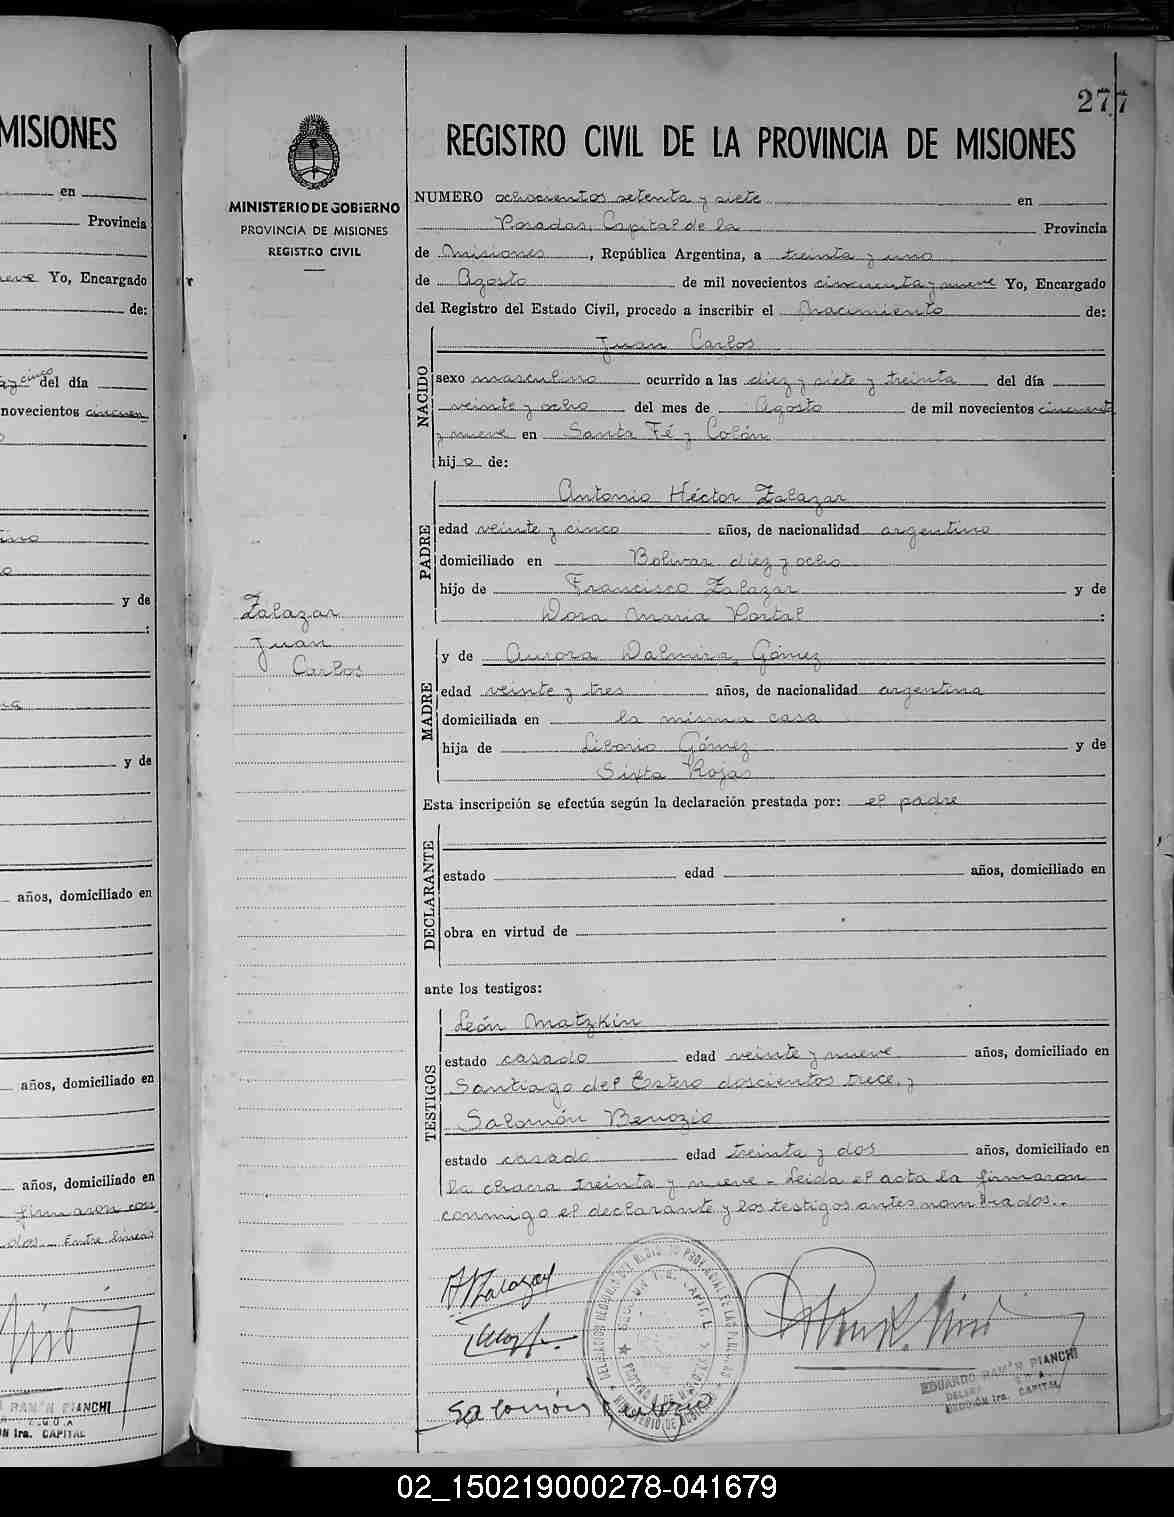 MISIONES
en
Provincia
Yo, Encargado
de:
del día
novecientos cincuen
y de
:
y de
años, domiciliado en
años, domiciliado en
años, domiciliado en
firmaron con
dos.- Entre líneas
RAMÓN BIANCHI
CAPITAL
277
MINISTERIO DE GOBIERNO
PROVINCIA DE MISIONES
REGISTRO CIVIL
Zalazar
Juan
Carlos
REGISTRO CIVIL DE LA PROVINCIA DE MISIONES
NUMERO ochocientos setenta y siete en
Posadas, Capital de la Provincia
de Misiones, República Argentina, a treinta y uno
de Agosto de mil novecientos cincuenta y nueve Yo, Encargado
del Registro del Estado Civil, procedo a inscribir el Nacimiento de:
NACIDO
Juan Carlos
sexo masculino ocurrido a las diez y siete y treinta del día
veinte y ocho del mes de Agosto de mil novecientos cincuenta
y nueve en Santa Fé y Colón
hijo de:
PADRE
Antonio Héctor Zalazar
edad veinte y cinco años, de nacionalidad argentino
domiciliado en Bolivar diez y ocho
hijo de Francisco Zalazar y de
Dora María Portal :
MADRE
y de Aurora Dalmira Gómez
edad veinte y tres años, de nacionalidad argentina
domiciliada en la misma casa
hija de Liborio Gómez y de
Sixta Rojas
Esta inscripción se efectúa según la declaración prestada por: el padre
DECLARANTE
estado edad años, domiciliado en
obra en virtud de
ante los testigos:
TESTIGOS
León Matzkin
estado casado edad veinte y nueve años, domiciliado en
Santiago del Estero doscientos trece, y
Salomón Benozio
estado casado edad treinta y dos años, domiciliado en
la chacra treinta y nueve - Leida el acta la firmaron
conmigo el declarante y los testigos antes nombrados.-
Salomón
EDUARDO RAMÓN BIANCHI
SECCIÓN 1ra. CAPITAL
02_150219000278-041679